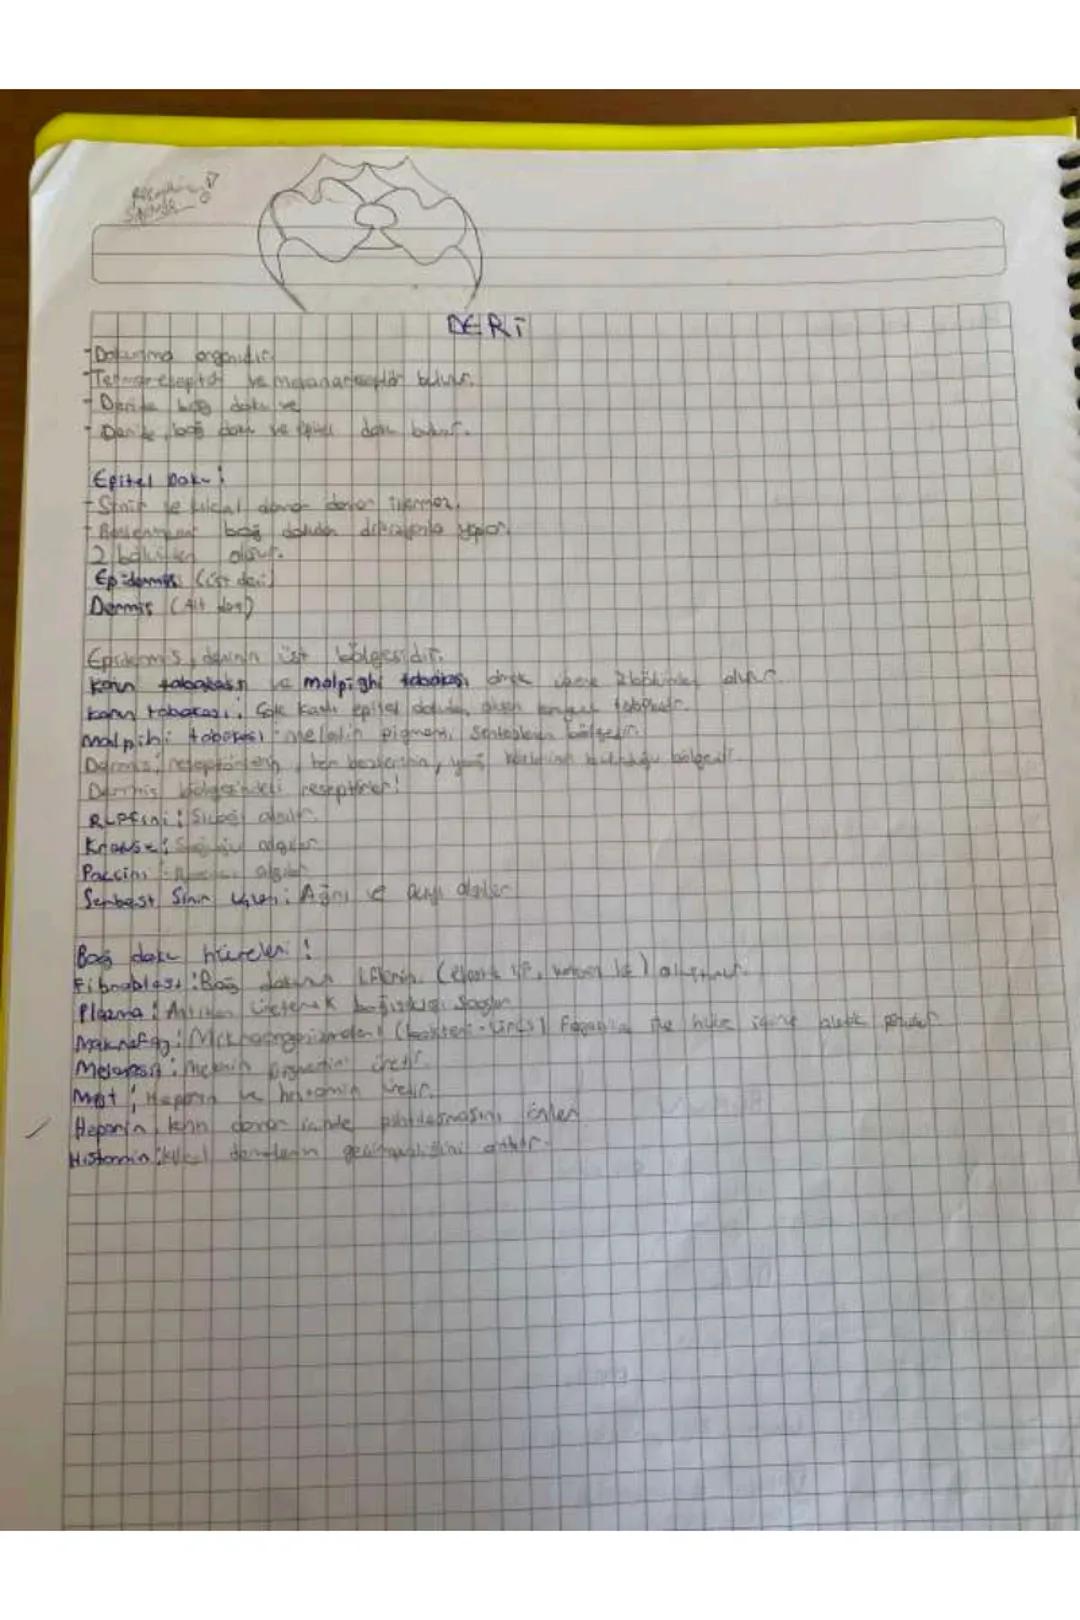 DERİ
- Dokunma organıdır.
- Termoreseptör ve mekanoreseptör bulunur.
- Deride bağ doku ve
- Deride bağ doku ve epitel doku bulunur.
Epitel Doku:
- Sinir ve kılcal damar damar içermez.
- Beslenmesini bağ dokudan difüzyonla yapar.
2 bölümden oluşur.
Epidermis (Üst deri)
Dermis (Alt deri)
Epidermis, derinin üst bölgesidir.
Korun tabakası ve malpighi tabakası olmak üzere 2 bölümden oluşur.
Korun tabakası: Çok katlı epitel dokudan oluşan tabakadır.
Malpihi tabakası: melanin pigmenti sentezlenen bölgedir.
Dermis: reseptörlerin, ter bezlerinin, yağ bulunduğu bölgedir.
Dermis bölgesindeki reseptörler:
Ruffini: Sıcağı algılar
Krause: Soğuğu algılar
Paccini: algılar
Serbest Sinir Uçları: Ağrı ve acıyı algılar
Bağ doku hücreleri:
Fibroblast: Bağ dokunun liflerini (elastik lif, kollajen lif) oluşturur.
Plazma: Antikor üreterek bağışıklığı sağlar
Makrofaj: Mikroorganizmaları (bakteri-virüs) fagositoz ile hücre içine alarak
Melanosit: Melanin pigmentini üretir.
Mast: Heparin ve histamin üretir.
Heparin, kanın damar içinde pıhtılaşmasını önler
Histamin: kılcal damarların geçirgenliğini arttırır.